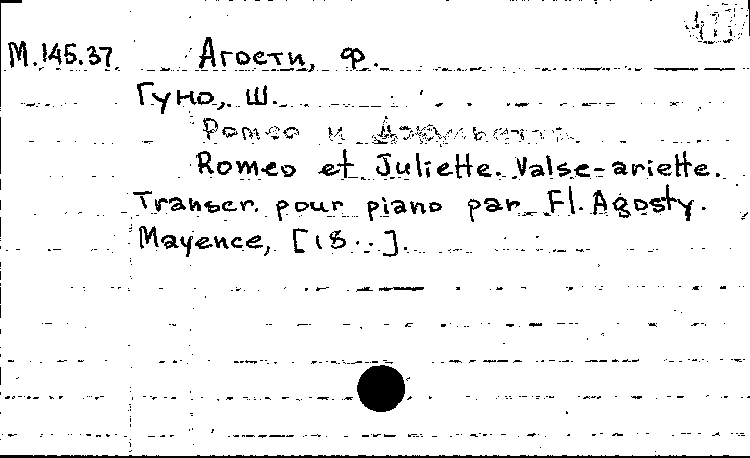 М.145.37. Агости, Ф.
Гуно, Ш.
Ромео и Джульетта
Romeo et Juliette. Valse-ariette.
Transcr. pour piano par Fl. Agosty.
Mayence, [18..].